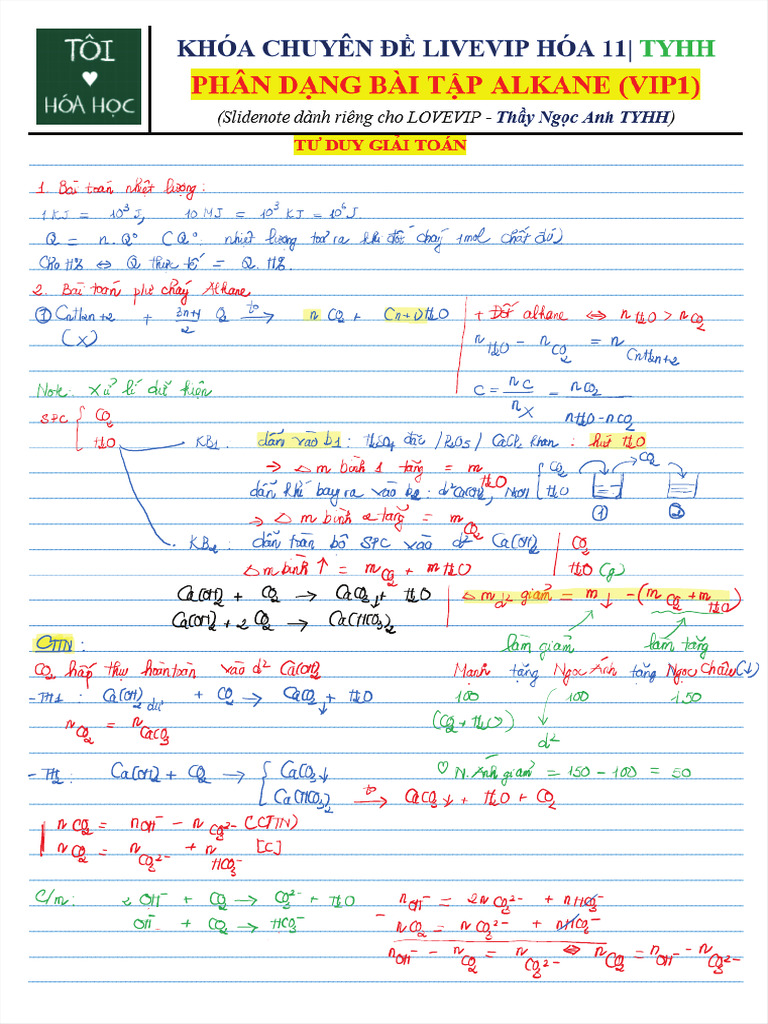 TÔI
♥
HÓA HỌC
KHÓA CHUYÊN ĐỀ LIVEVIP HÓA 11| TYHH
PHÂN DẠNG BÀI TẬP ALKANE (VIP1)
(Slidenote dành riêng cho LOVEVIP - Thầy Ngọc Anh TYHH)
TƯ DUY GIẢI TOÁN
1. Bài toán nhiệt lượng:
1 KJ = 10³ J, 10 MJ = 10³ KJ = 10⁶ J
Q = n.Q° (Q°: nhiệt lượng toả ra khi đốt cháy 1mol chất đó)
Cho H% ⇔ Q thực tế = Q.H%.
2. Bài toán pư cháy Alkane
① CnH2n+2 + (3n+1)/2 O₂ →(t°) n CO₂ + (n+1)H₂O
(X)
+ Đốt alkane ⇔ nH₂O > nCO₂
nH₂O - nCO₂ = nCnH2n+2
C = nC/nX = nCO₂/(nH₂O - nCO₂)
Note: Xử lí dữ kiện
SPC { CO₂
H₂O
KB1: dẫn vào b1: H₂SO₄ đặc / P₂O₅ / CaCl₂ khan: hút H₂O
→ Δ m bình 1 tăng = mH₂O
dẫn khí bay ra vào b2: d² Ca(OH)₂, NaOH
→ Δ m bình 2 tăng = mCO₂
{ CO₂
H₂O
CO₂
① ②
KB2: dẫn toàn bộ SPC vào d² Ca(OH)₂ | CO₂
Δ m bình ↑ = mCO₂ + mH₂O | H₂O (g)
Ca(OH)₂ + CO₂ → CaCO₃↓ + H₂O
Ca(OH)₂ + 2CO₂ → Ca(HCO₃)₂
Δ m d² giảm = m↓ - (mCO₂ + mH₂O)
làm giảm làm tăng
CTTN:
CO₂ hấp thụ hoàn toàn vào d² Ca(OH)₂
- TH1: Ca(OH)₂ dư + CO₂ → CaCO₃↓ + H₂O
nCO₂ = nCaCO₃
Mạnh tặng Ngọc Ánh tặng Ngọc Châu (↓)
100 100 150
(CO₂ + H₂O)
d²
♡ N. Ánh giảm = 150 - 100 = 50
- TH2: Ca(OH)₂ + CO₂ → { CaCO₃↓
Ca(HCO₃)₂ →(t°) CaCO₃↓ + H₂O + CO₂
nCO₂ = nOH⁻ - nCO₃²⁻ (CTTN)
nCO₂ = nCO₃²⁻ + nHCO₃⁻ [C]
C/m: 2OH⁻ + CO₂ → CO₃²⁻ + H₂O
OH⁻ + CO₂ → HCO₃⁻
nOH⁻ = 2nCO₃²⁻ + nHCO₃⁻
- nCO₂ = nCO₃²⁻ + nHCO₃⁻
nOH⁻ - nCO₂ = nCO₃²⁻ ⇔ nCO₂ = nOH⁻ - nCO₃²⁻